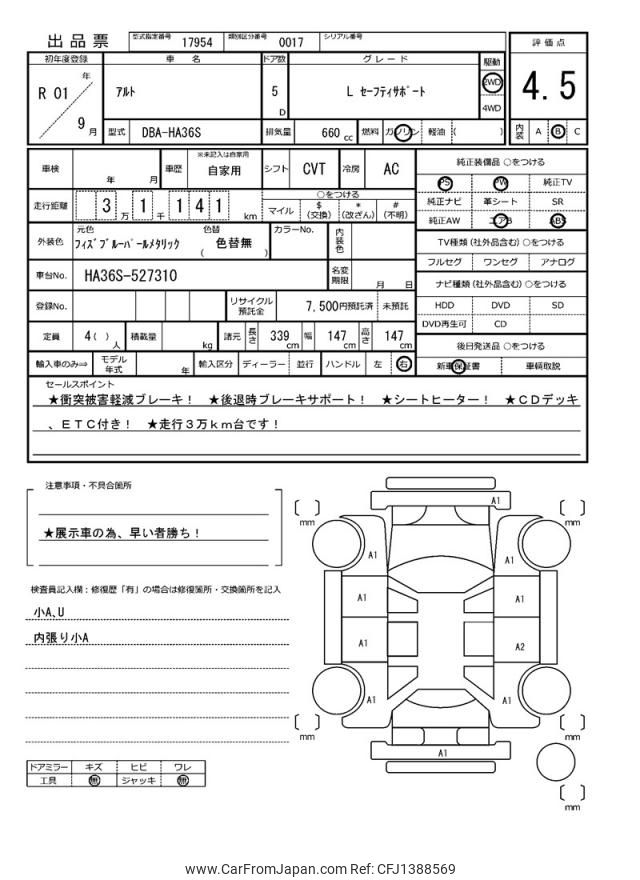 出品票 型式指定番号 17954 類別区分番号 0017 シリアル番号
評価点
4.5
内装 A B C
初年度登録 車名 ドア数 グレード 駆動
R 01 年 アルト 5 D L セーフティサポート 2WD
4WD
9 月 型式 DBA-HA36S 排気量 660 cc 燃料 ガソリン 軽油 ( )
車検 年 月 車歴 ※未記入は自家用 自家用 シフト CVT 冷房 AC
走行距離 3 万 1 千 1 4 1 km ○をつける
マイル $ (交換) * (改ざん) # (不明)
外装色 元色 フィズブルーパールメタリック 色替 ( 色替無 ) カラーNo. 内装色
車台No. HA36S-527310 名変期限 月 日
登録No. リサイクル預託金 7,500円預託済 未預託
定員 4( ) 人 積載量 kg 諸元 長さ 339 cm 幅 147 cm 高さ 147 cm
輸入車のみ⇒ モデル年式 年 輸入区分 ディーラー 並行 ハンドル 左 右
純正装備品 ○をつける
PS PW 純正TV
純正ナビ 革シート SR
純正AW エアB ABS
TV種類(社外品含む)○をつける
フルセグ ワンセグ アナログ
ナビ種類(社外品含む)○をつける
HDD DVD SD
DVD再生可 CD
後日発送品 ○をつける
新車保証書 車輌取説
セールスポイント
★衝突被害軽減ブレーキ! ★後退時ブレーキサポート! ★シートヒーター! ★CDデッキ
、ETC付き! ★走行3万km台です!
注意事項・不具合箇所
★展示車の為、早い者勝ち!
検査員記入欄:修復歴「有」の場合は修復箇所・交換箇所を記入
小A,U
内張り小A
ドアミラー キズ ヒビ ワレ
工具 無 ジャッキ 無
A1
mm mm
A1 A1
A1 A1
A1 A2
A1 A1
mm mm
A1
mm
www.CarFromJapan.com Ref: CFJ1388569